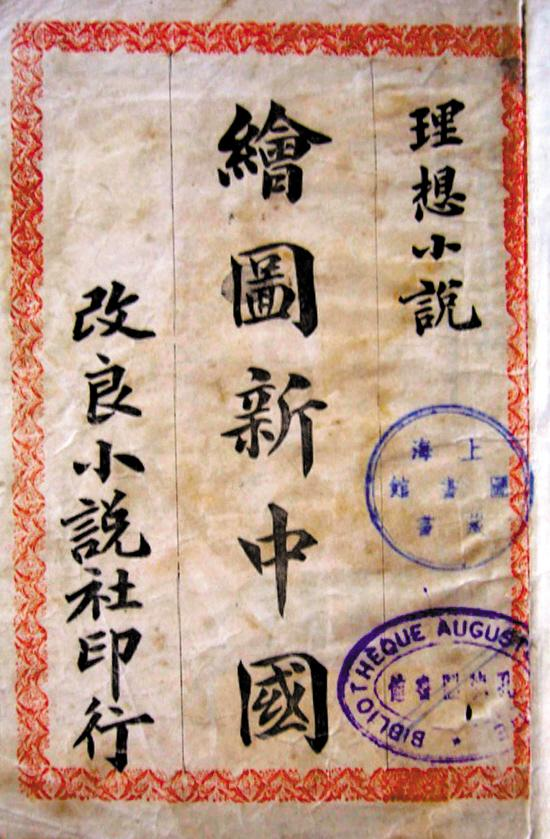 理想小說
繪圖新中國
改良小說社印行
上海
圖書館
藏書
BIBLIOTHÈQUE AUGUST